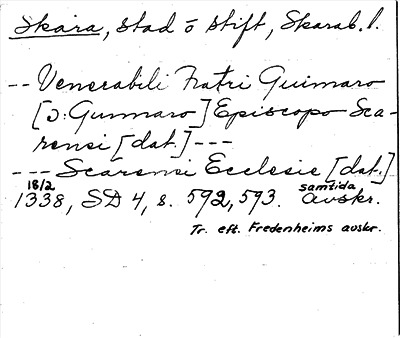 Skara, stad o stift, Skarab. l.
-- Venerabili Fratri Guimaro
[ɔ: Gunnaro] Episcopo Sca-
rensi [dat.] ---
--- Scarensi Ecclesie [dat.]
18/2 samtida
1338, SD 4, s. 592, 593. avskr.
Tr. eft. Fredenheims avskr.